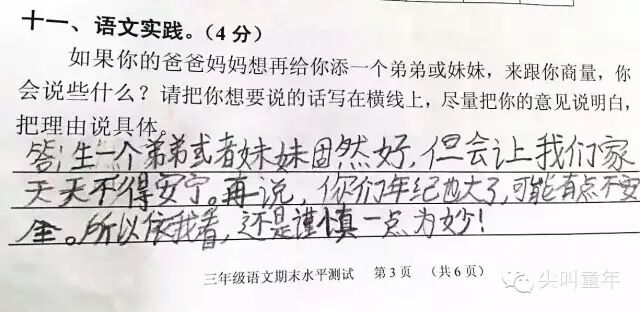 十一、语文实践。(4分)
如果你的爸爸妈妈想再给你添一个弟弟或妹妹，来跟你商量，你
会说些什么？请把你想要说的话写在横线上，尽量把你的意见说明白，
把理由说具体。
答：生一个弟弟或者妹妹固然好，但会让我们家
天天不得安宁。再说，你们年纪也大了，可能有点不安
全。所以依我看，还是谨慎一点为妙！
三年级语文期末水平测试 第3页 (共6页)
尖叫童年